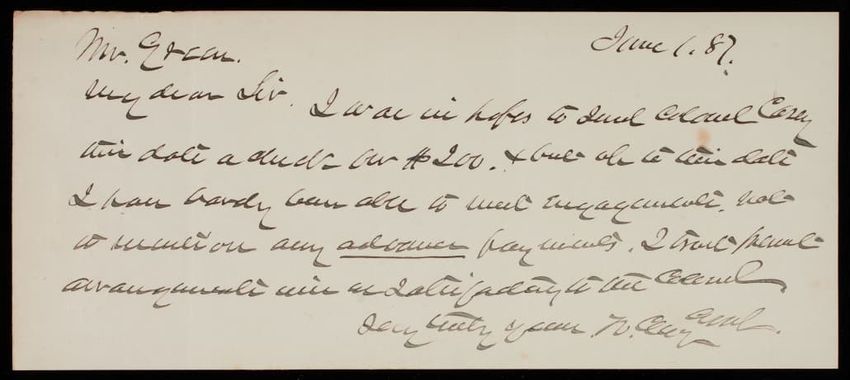 June 1. 87.
Mr. Green.
My dear Sir. I was in hopes to send Colonel Casey
this date a check for $200. & but up to this date
I have barely been able to meet engagements, not
to mention any advance payments. I trust present
arrangements will be satisfactory to the Colonel.
Very truly yours. W. Clay